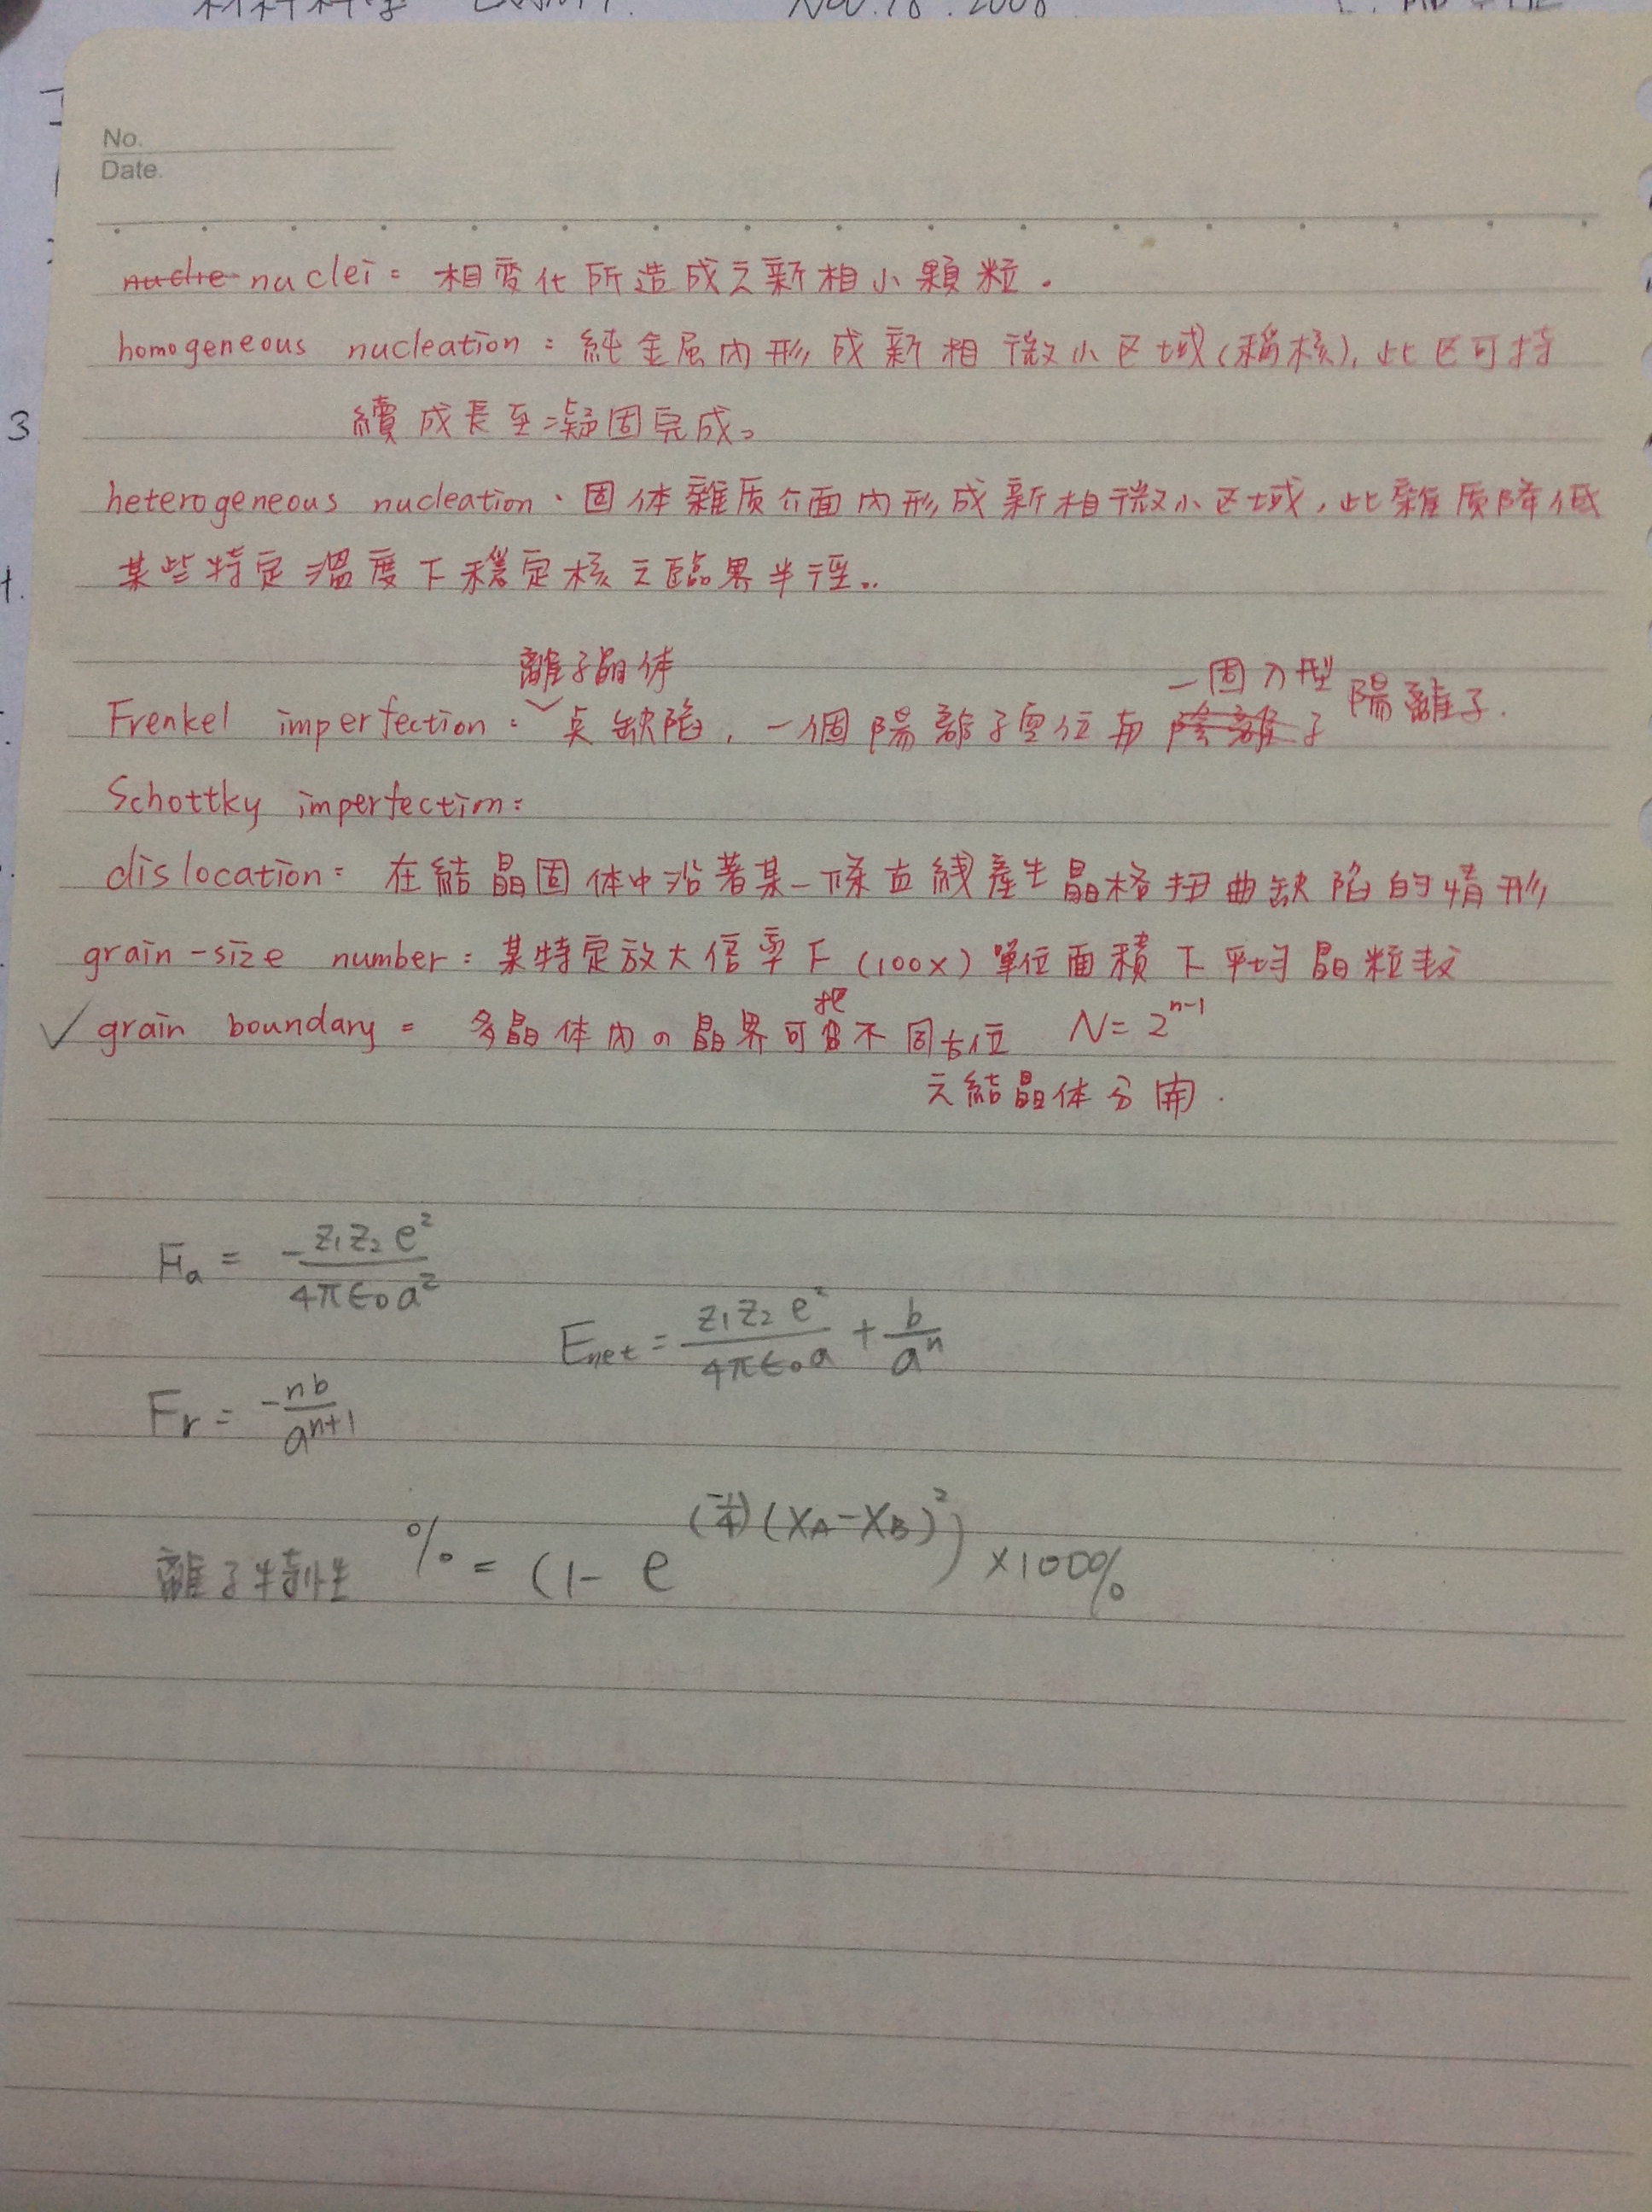 Nov. 18. 2008
No.
Date.
nuclei: 相変化所造成之新相小顆粒.
homogeneous nucleation: 純金屬內形成新相微小区域(稱核), 此区可持
3
續成長至凝固完成。
heterogeneous nucleation、固体雜质介面內形成新相微小区域, 此雜质降低
1.
某些特定溫度下穩定核之臨界半徑..
離子晶体
一個介型
Frenkel imperfection: 点缺陷, 一個陽離子空位与 陰離子 陽離子.
Schottky imperfection:
dislocation: 在結晶固体中沿著某一條直線產生晶格扭曲缺陷的情形
grain-size number: 某特定放大倍率下 (100x) 單位面積下平均晶粒数
✓ grain boundary = 多晶体內の晶界可把不同方位 N=2^{n-1}
之結晶体分開.
Fa = -Z₁Z₂e²/4πϵ₀a²
Enet = Z₁Z₂e²/4πϵ₀a + b/aⁿ
Fr = -nb/a^{n+1}
離子特性 % = (1- e^{(-1/4)(XA-XB)²}) ×100%